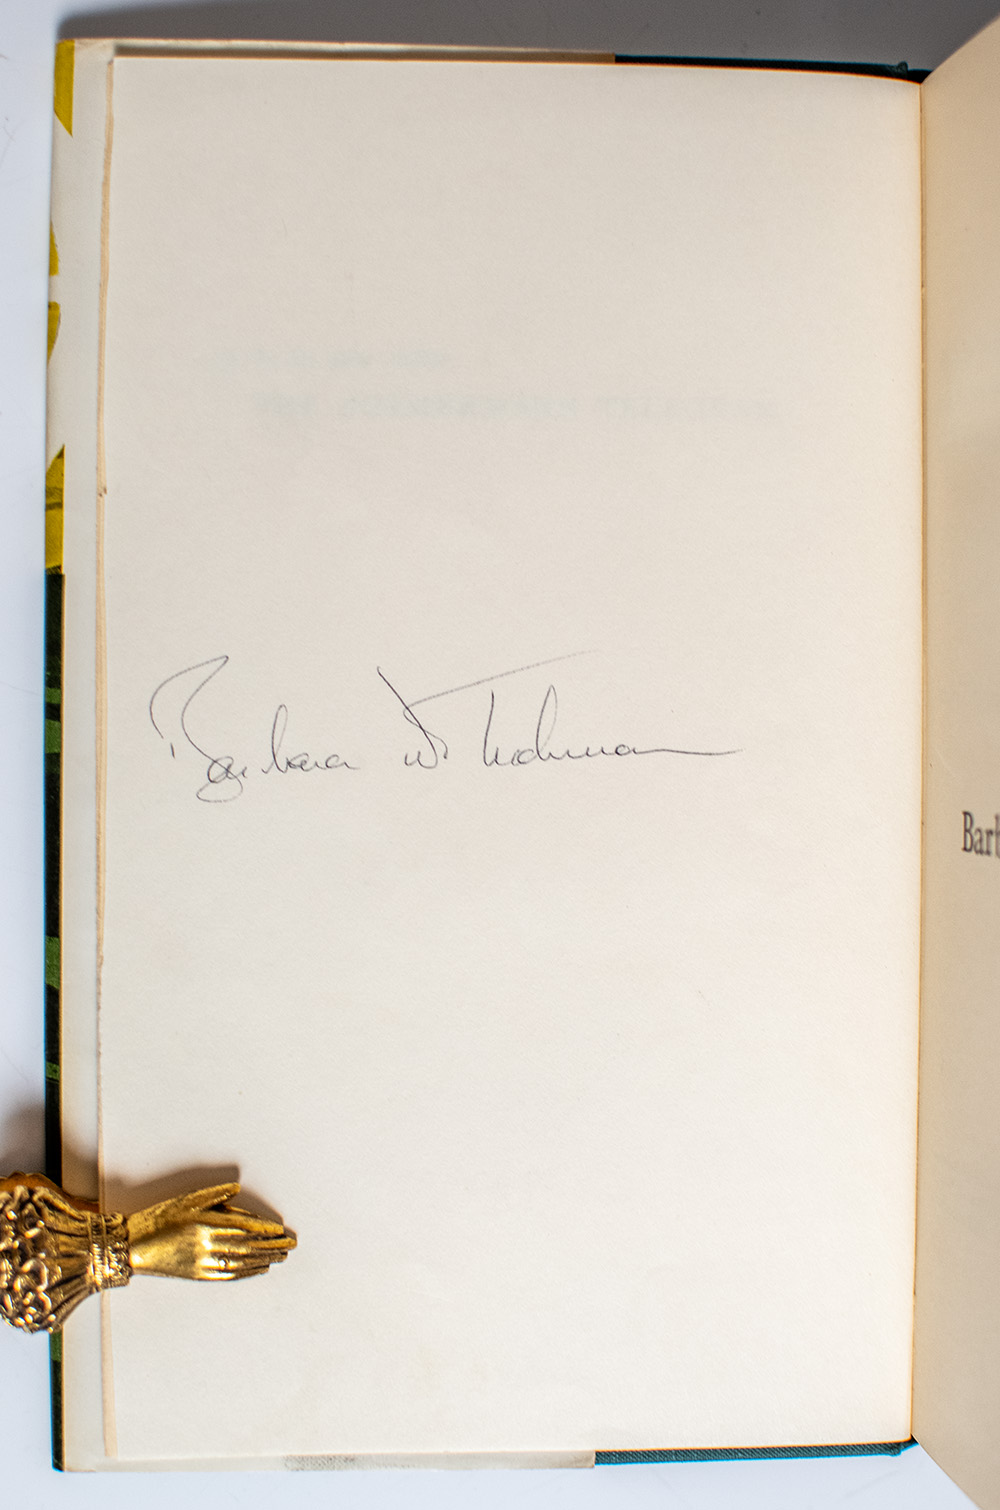 Barbara W. Tuchman
Barb